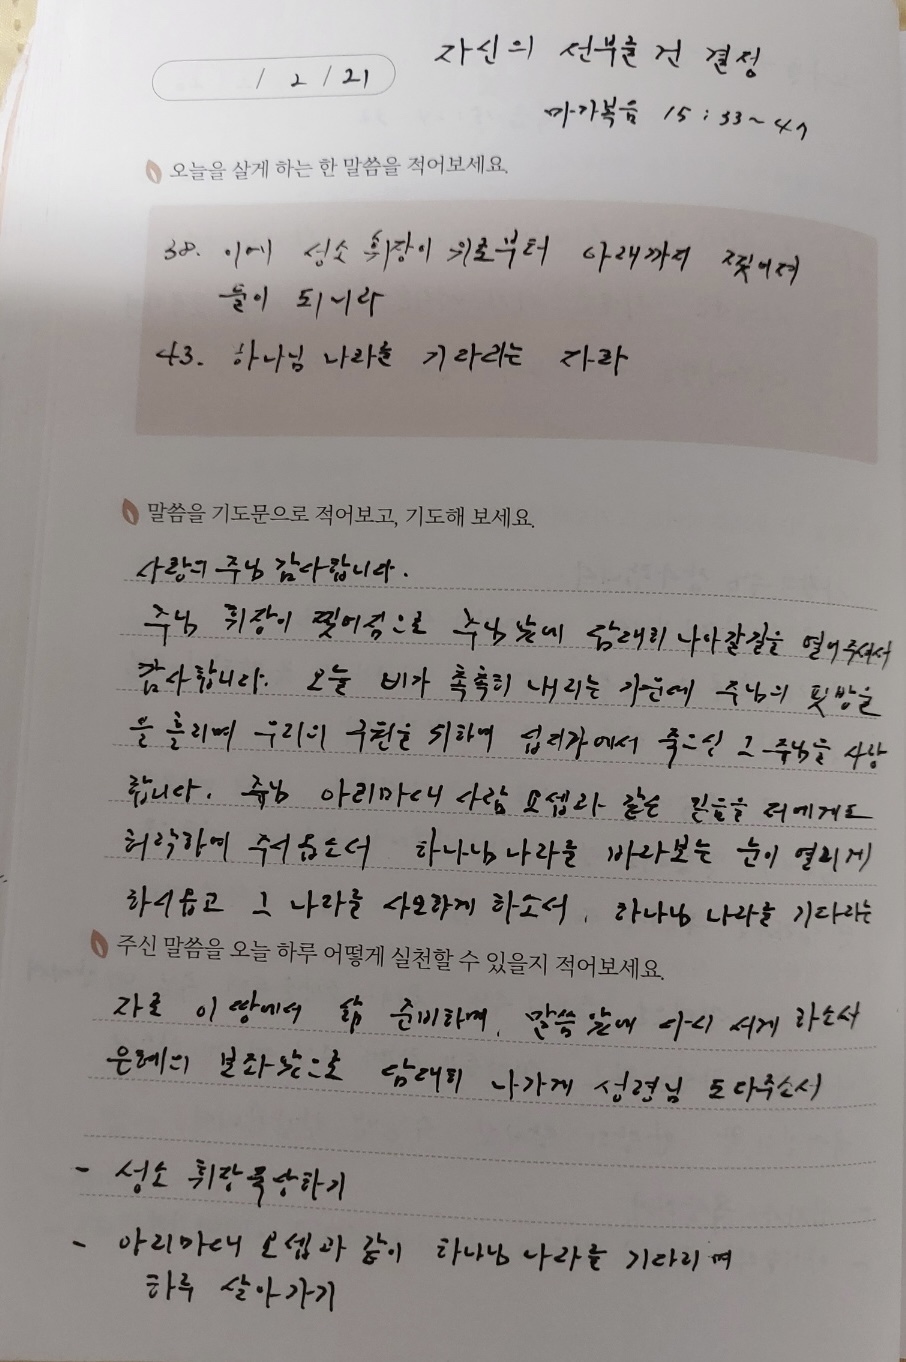 자신의 전부를 건 결정
/ 2 / 21
마가복음 15 : 33~47
오늘을 살게 하는 한 말씀을 적어보세요.
38. 이에 성소 휘장이 위로부터 아래까지 찢어져
둘이 되니라
43. 하나님 나라를 기다리는 자라
말씀을 기도문으로 적어보고, 기도해 보세요.
사랑의 주님 감사합니다.
주님 휘장이 찢어짐으로 주님 앞에 담대히 나아갈 길을 열어주셔서
감사합니다. 오늘 비가 촉촉히 내리는 가운데 주님의 핏방울
을 흘리며 우리의 구원을 위하여 십자가에서 죽으신 그 주님을 사랑
합니다. 주님 아리마대 사람 요셉과 같은 믿음을 저에게도
허락하여 주시옵소서 하나님 나라를 바라보는 눈이 열리게
하시옵고 그 나라를 사모하게 하소서, 하나님 나라를 기다리는
주신 말씀을 오늘 하루 어떻게 실천할 수 있을지 적어보세요.
자로 이 땅에서 삶 준비하며, 말씀 앞에 다시 서게 하소서
은혜의 보좌 앞으로 담대히 나가게 성령님 도와주소서
- 성소 휘장 묵상하기
- 아리마대 요셉과 같이 하나님 나라를 기다리며
하루 살아가기